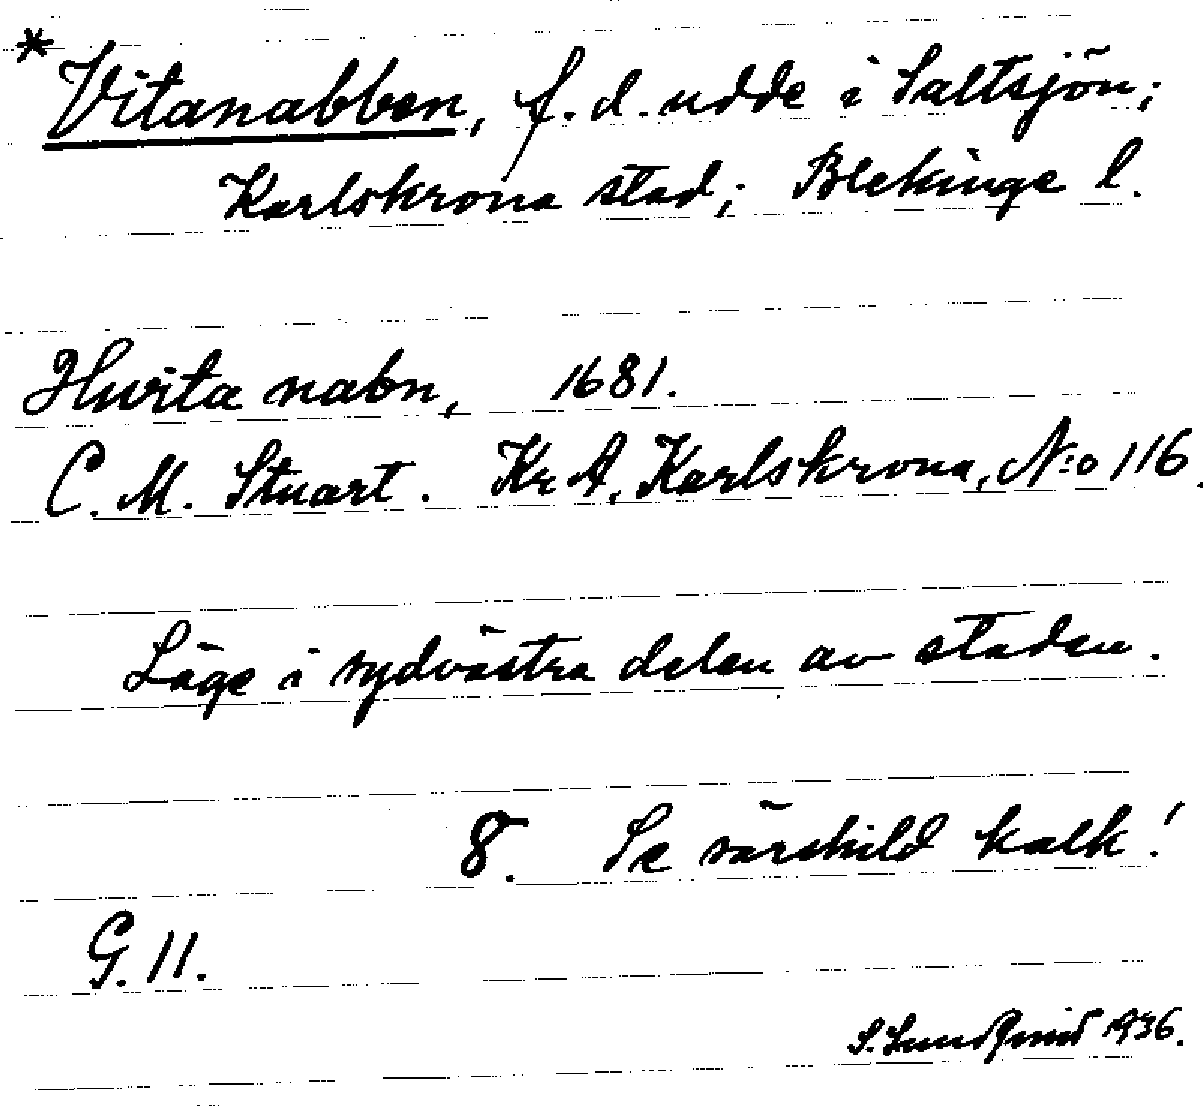 *Vitanabben, f. d. udde i Saltsjön;
Karlskrona stad; Blekinge l.
Hwita nabn, 1681.
C. M. Stuart. Kr A, Karlskrona, N:o 116.
Läge i sydvästra delen av staden.
8. Se särskild kalk!
G. 11.
S. Lundqvist 1936.